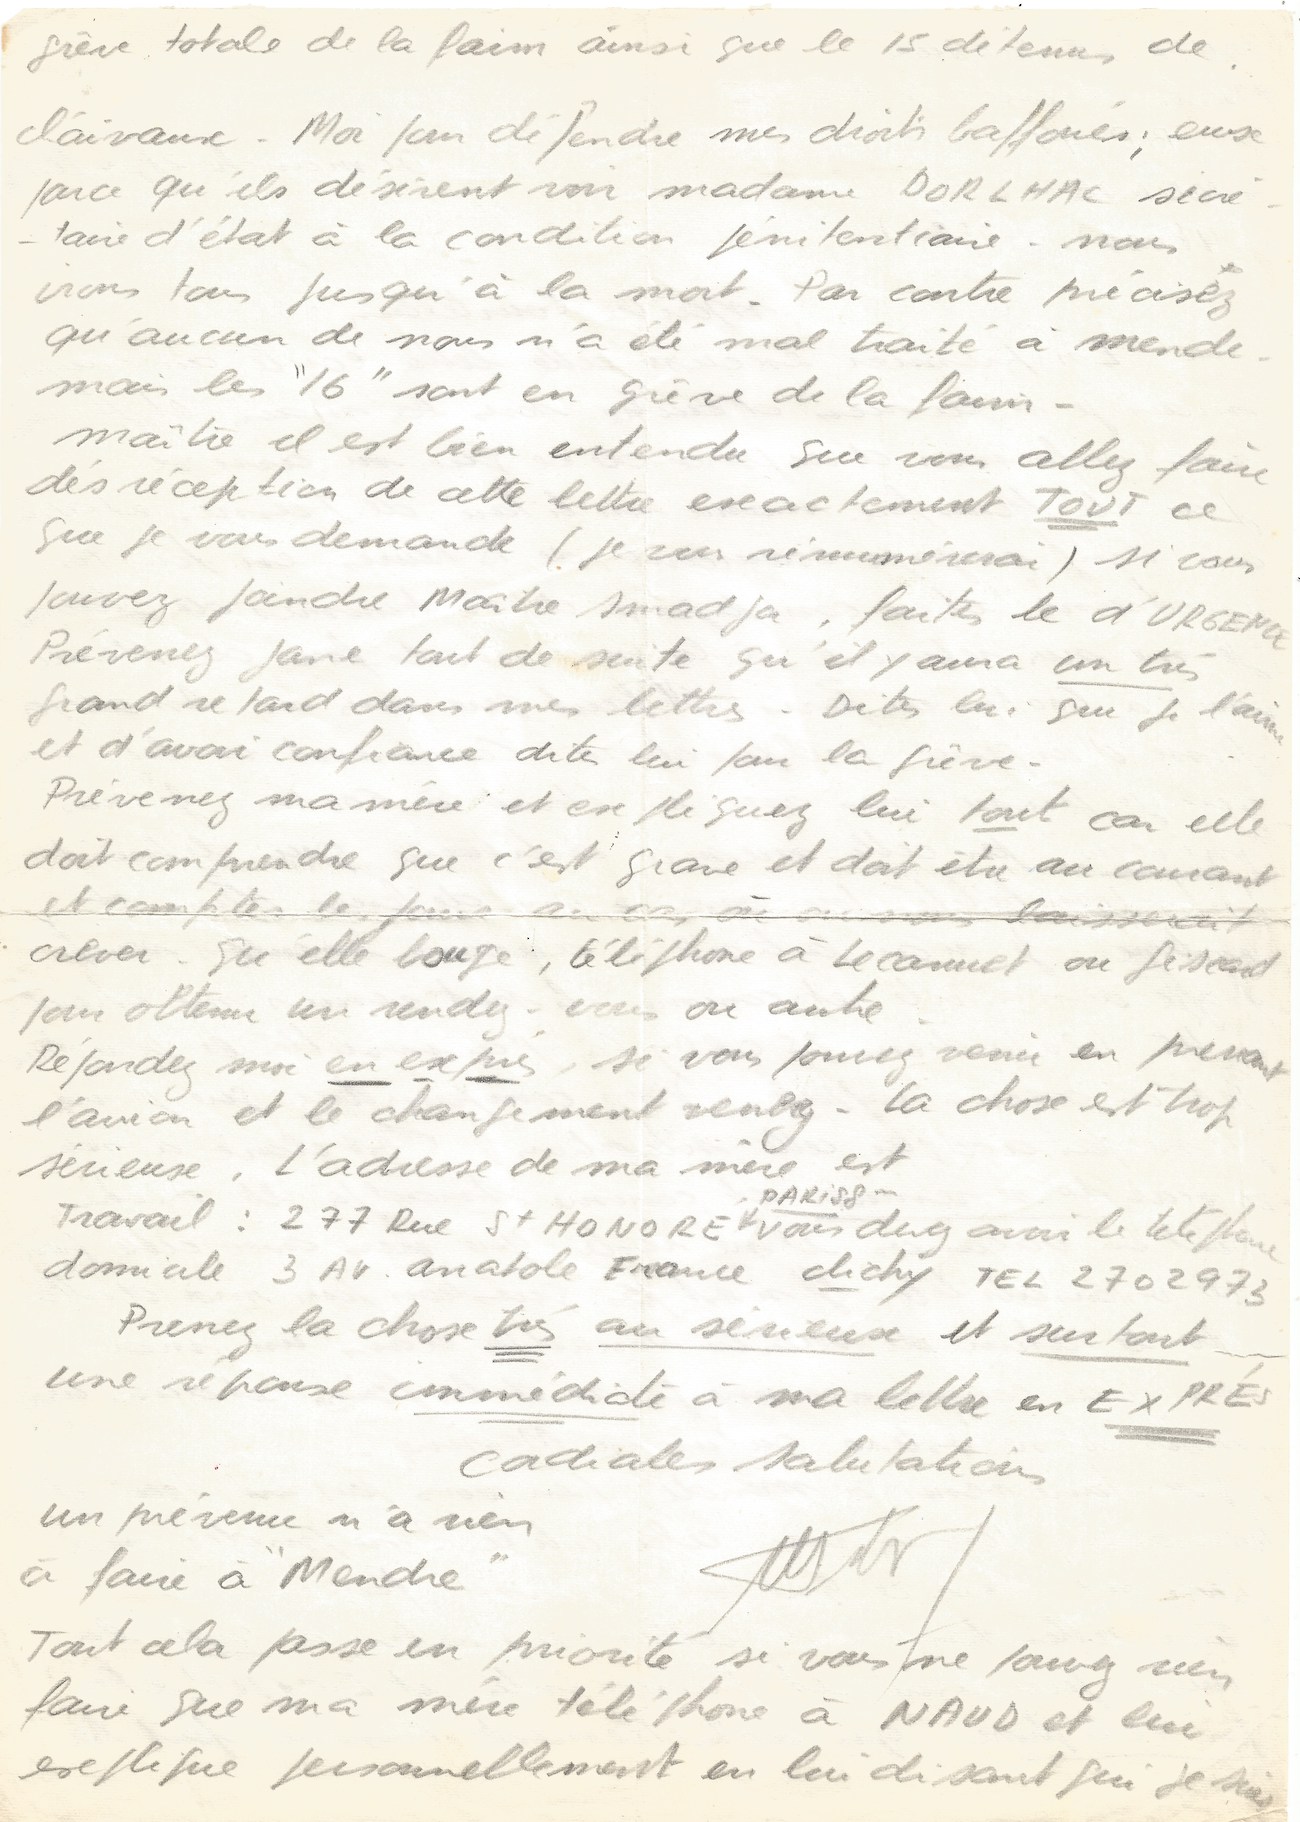 grève totale de la faim ainsi que le 15 détenus de
Clairvaux - Moi pour défendre mes droits baffoués; euxe
parce qu'ils désirent voir madame DORLHAC sécré-
-taire d'état à la condition pénitentiaire - nous
irons tous jusqu'à la mort. Par contre précisez
qu'aucun de nous n'a été mal traité à mende.
mais les "16" sont en grève de la faim -
maître il est bien entendu que vous allez faire
dés réception de cette lettre exactement TOUT ce
que je vous demande (je vous rénumérerai) si vous
pouvez joindre Maître Smadja, faites le d'URGENCE
Prévenez jane tout de suite qu'il y aura un très
grand retard dans mes lettres - Dites lui que je l'aime
et d'avoir confiance dites lui pour la grève -
Prévenez ma mère et expliquez lui tout car elle
doit comprendre que c'est grave et doit être au courant
et compter les jours au cas où on nous laisserait
crever - qu'elle bouge, téléphone à Lecanuet ou giscard
pour obtenir un rendez-vous ou autre
Répondez moi en exprès, si vous pouvez venir en prenant
l'avion et le changement venez - La chose est trop
sérieuse. L'adresse de ma mère est
PARIS 8 -
Travail : 277 Rue St HONORE vous devez avoir le téléphone
domicile 3 AV. anatole France clichy TEL 2702973
Prenez la chose très au sérieuse et surtout
une réponse immédiate à ma lettre en EXPRÉS
cordiales salutations
un prévenu n'a rien
à faire à "Mende"
Tout cela passe en priorité si vous ne pouvez rien
faire que ma mère téléphone à NAUD et lui
explique personnellement en lui disant qui je suis